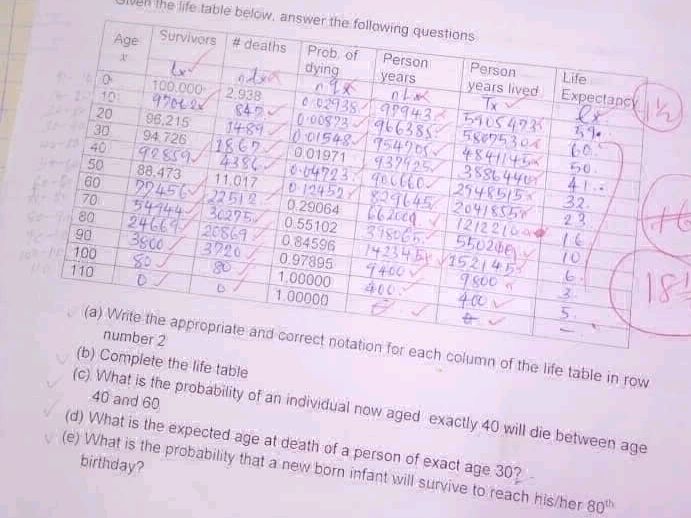 Given the life table below, answer the following questions
Age Survivors # deaths Prob. of dying Person years Person years lived Life Expectancy
x lx ndx nqx nLx Tx ex 1½
0 100,000 2,938 0.02938 979431 59.
10 97062 847 0.00873 966385 5807530 60.
20 96,215 1489 0.01548 954705 4841145 50.
30 94,726 1867 0.01971 937925 3886440 41.
40 92859 4386 0.04723 906660 2948515 32.
50 88,473 11,017 0.12452 829645 2041855 23.
60 77456 22512 0.29064 662000 1212210 16
70 54944 30275 0.55102 398065 550210 10
80 24669 20869 0.84596 142345 152145 6.
90 3800 3720 0.97895 9400 9800 3.
100 80 80 1.00000 400 400 5.
110 0 0 1.00000
(a) Write the appropriate and correct notation for each column of the life table in row
number 2
(b) Complete the life table
(c) What is the probability of an individual now aged exactly 40 will die between age
40 and 60
(d) What is the expected age at death of a person of exact age 30?
(e) What is the probability that a new born infant will survive to reach his/her 80th
birthday?